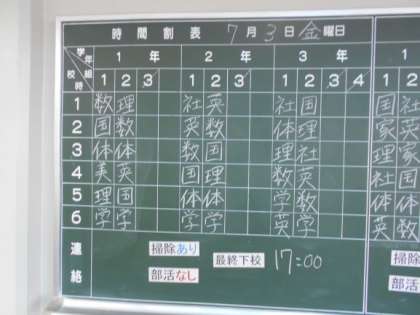 時間割表 7月3日金曜日
学年 1年 2年 3年 1
校時 組 1 2 3 1 2 3 1 2 3 4 1 2
1 数 理 社 英 社 国 国 社
2 国 数 英 数 体 理 家 英
3 体 体 数 国 理 社 理 家
4 美 英 国 理 数 英 社 国
5 理 国 体 体 学 数 体 体
6 学 学 学 学 英 学 英 数
連絡 掃除あり 最終下校 17:00 掃除
部活なし 部活